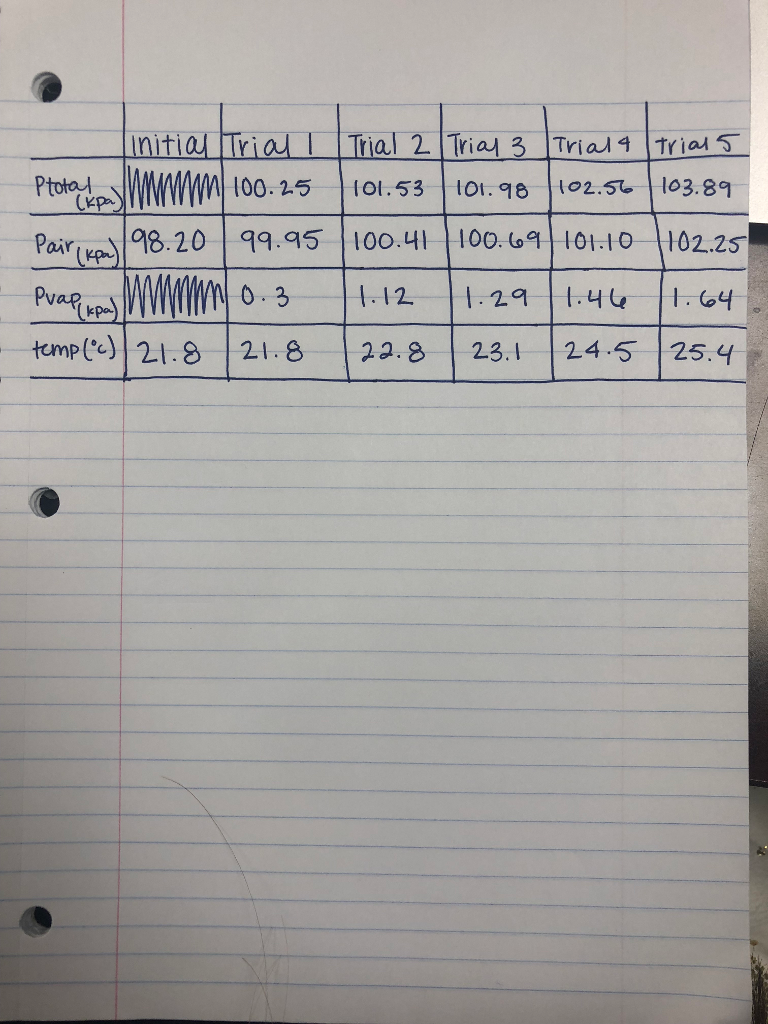 initial Trial 1 Trial 2 Trial 3 Trial 4 trial 5
Ptotal (kpa) 100.25 101.53 101.98 102.56 103.89
Pair (kpa) 98.20 99.95 100.41 100.69 101.10 102.25
Pvap (kpa) 0.3 1.12 1.29 1.46 1.64
temp (°c) 21.8 21.8 22.8 23.1 24.5 25.4